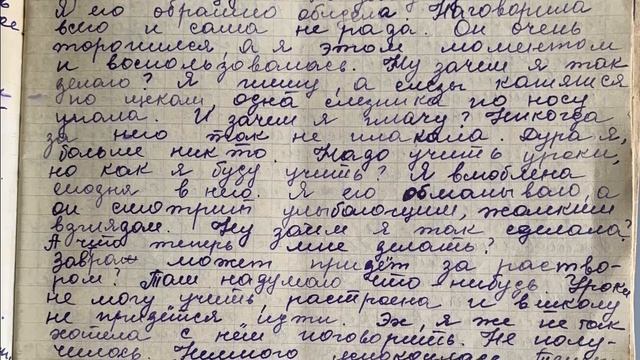 Я его обратно обидела. Наговорила
всего и сама не рада. Он очень
торопился, а я этом моментом
и воспользовалась. Ну зачем я так
делаю? Я пишу, а слезы катяться
по щекам, одна слезинка по носу
упала. И зачем я плачу? Никогда
за него так не плакала. Дура я,
больше никто. Надо учить уроки,
но как я буду учить? Я влюблена
сегодня в него. Я его обманываю, а
он смотрит улыбающим, жалким
взглядом. Ну зачем я так сделала?
А что теперь мне делать?
Завтра может придёт за раство-
ром? Там надумаю что нибудь. Уроки
не могу учить, растроена и в школу
не придётся идти. Эх, я же не так
хотела с нём поговорить. Не полу-
чилось. Немного